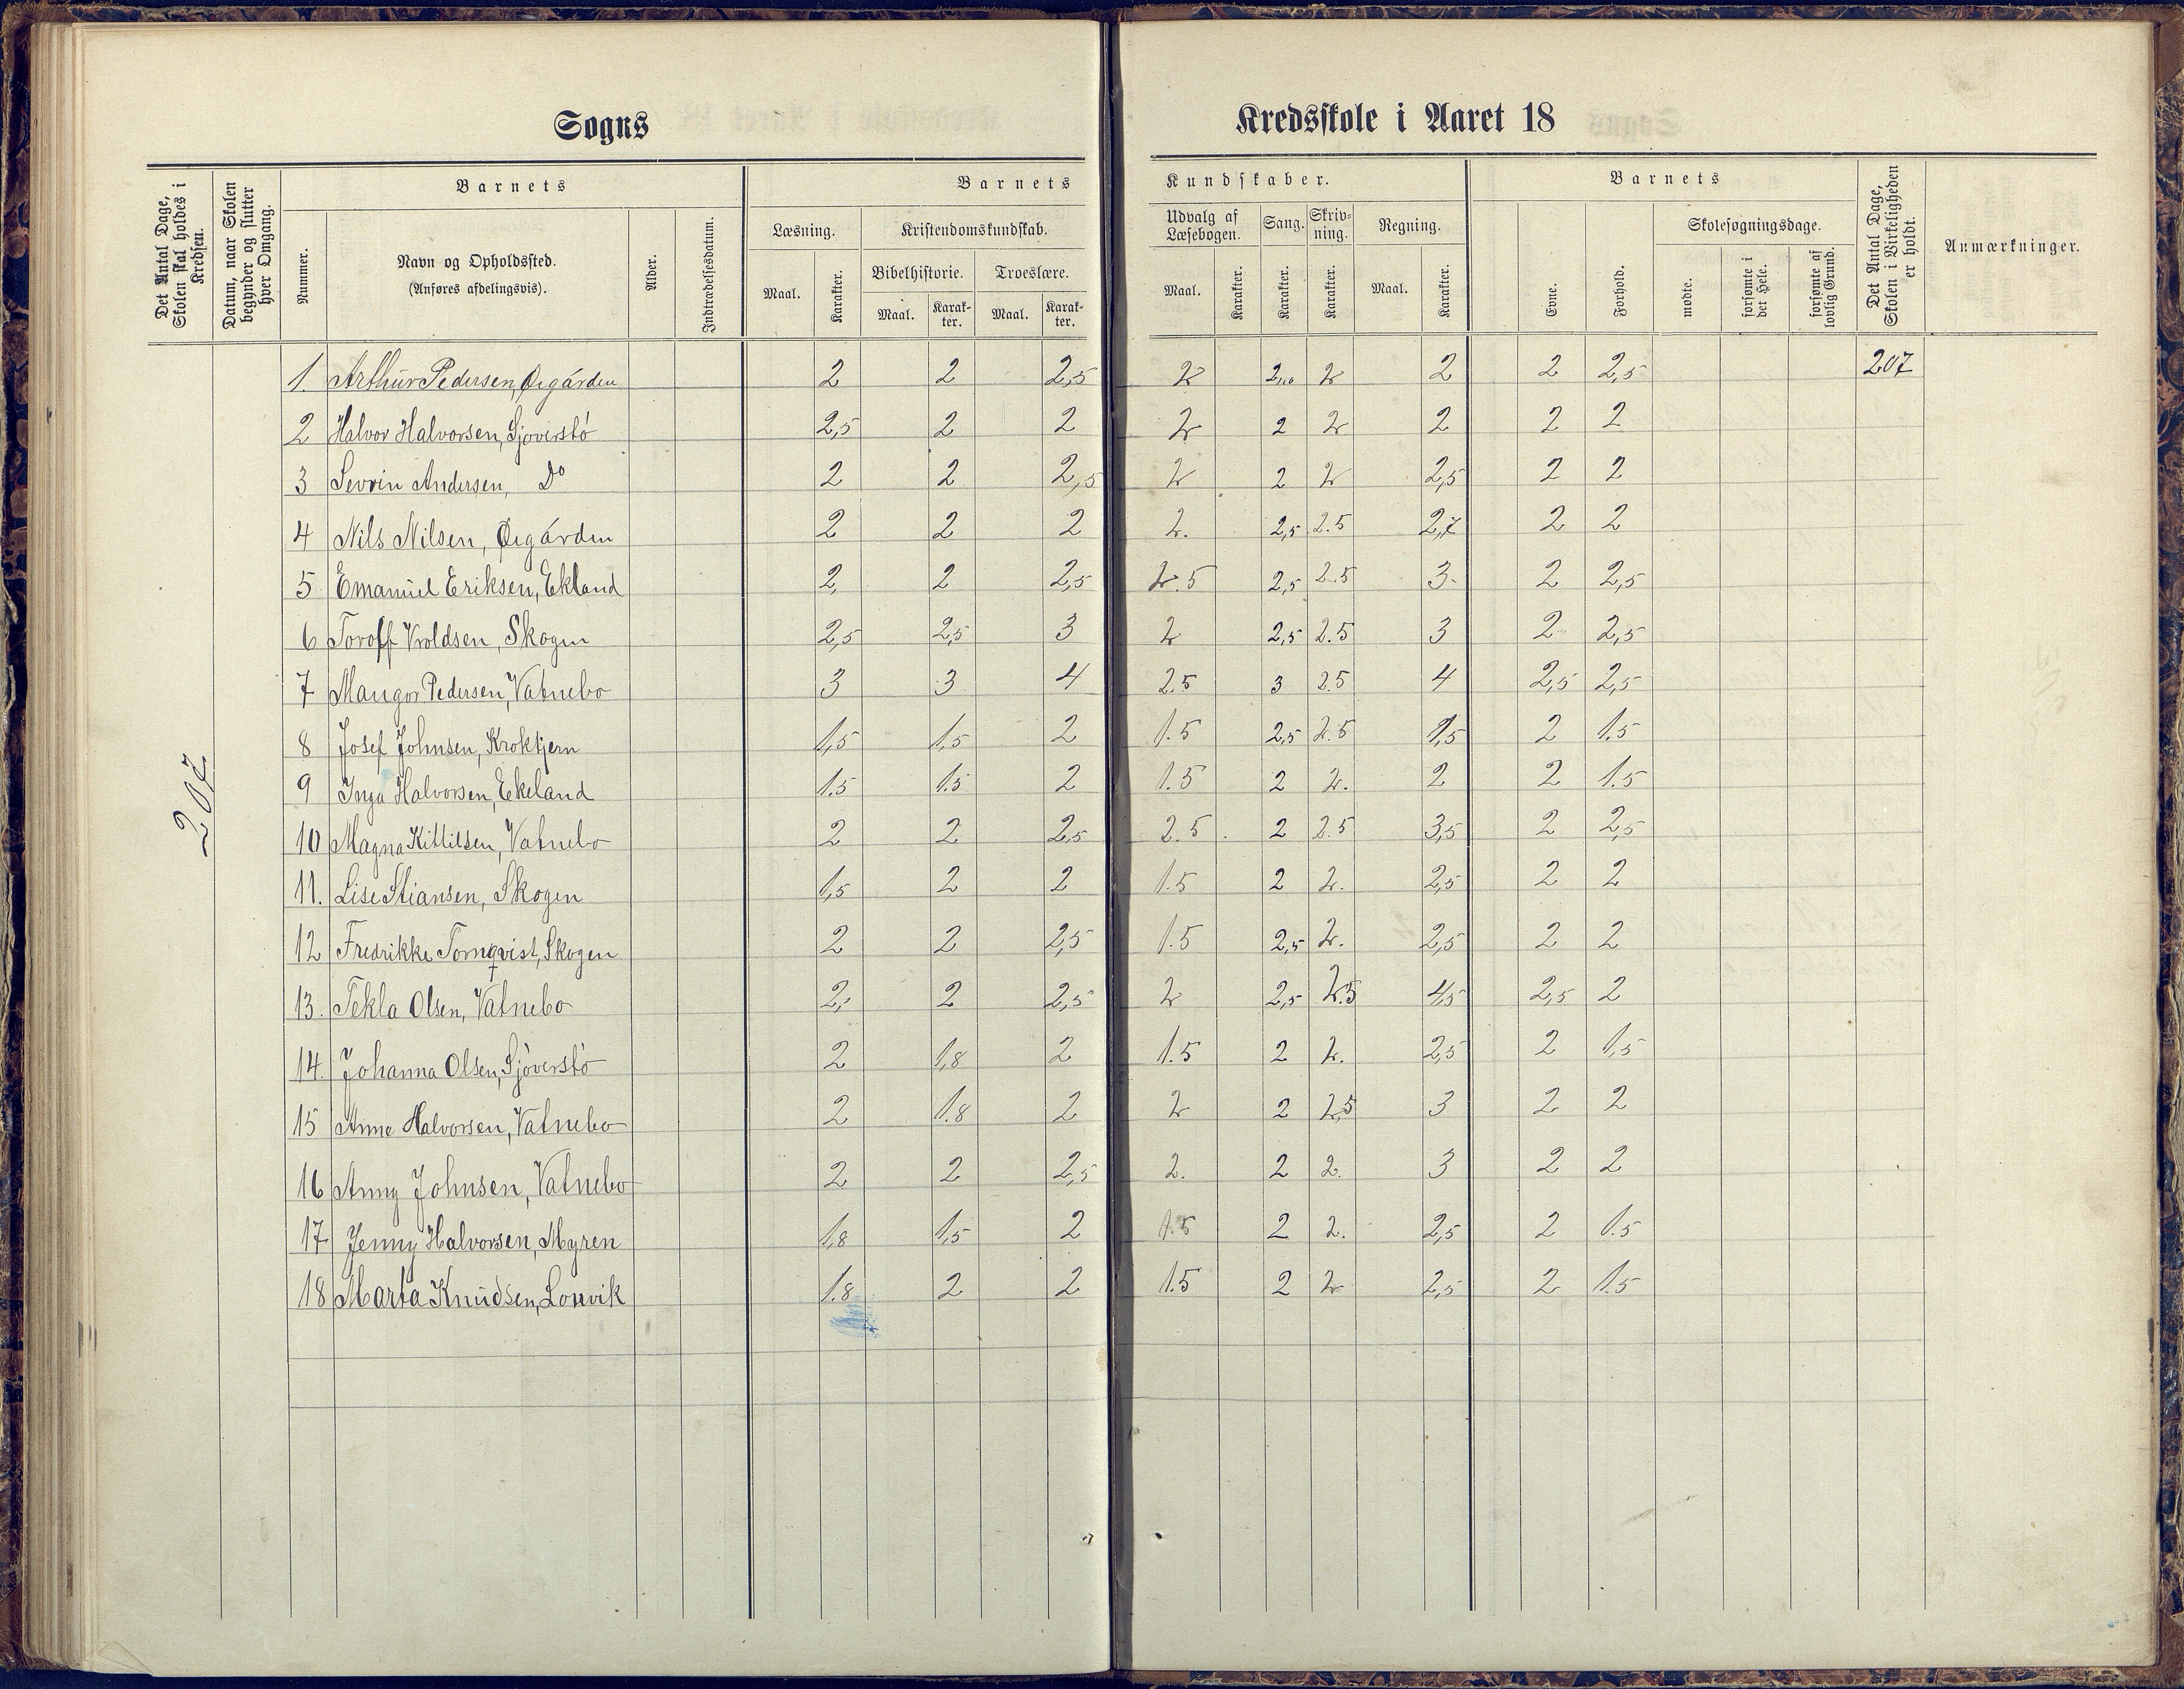 Sogns
Kredsskole i Aaret 18
Det Antal Dage, Skolen skal holdes i Kredsen.
Datum, naar Skolen begynder og slutter hver Omgang.
Barnets
Nummer.
Navn og Opholdssted.
(Anføres afdelingsvis).
Alder.
Indtrædelsesdatum.
Barnets
Læsning.
Maal.
Karakter.
Kristendomskundskab.
Bibelhistorie.
Maal.
Karak-
ter.
Troeslære.
Maal.
Karak-
ter.
Kundskaber.
Udvalg af
Læsebogen.
Maal.
Karakter.
Sang.
Karakter.
Skriv-
ning.
Karakter.
Regning.
Maal.
Karakter.
Barnets
Evne.
Forhold.
Skolesøgningsdage.
mødte.
forsømte i det Hele.
forsømte af lovlig Grund.
Det Antal Dage, Skolen i Virkeligheden er holdt.
Anmærkninger.
207
1. Arthur Pedersen, Øigården 2 2 2,5 2 2 2 2 2,5 207
2 Halvor Halvorsen, Sjøverstö 2,5 2 2 2 2 2 2 2 2
3 Sevrin Andersen, Do 2 2 2,5 2 2 2 2,5 2 2
4 Nils Nilsen, Øigården 2 2 2 2. 2,5 2.5 2,7 2 2
5 Emanuel Eriksen, Ekland 2, 2 2,5 2.5 2,5 2.5 3. 2 2,5
6 Toroff Vroldsen, Skogen 2,5 2,5 3 2 2,5 2.5 3 2 2,5
7 Mangor Pedersen, Vatnebo 3 3 4 2.5 3 2.5 4 2,5 2,5
8 Josef Johnsen, Kroktjern 1,5 1,5 2 1.5 2,5 2.5 1,5 2 1.5
9 Inga Halvorsen, Ekeland 1.5 1.5 2 1.5 2 2. 2 2 1.5
10 Magna Kittilsen, Vatnebo 2 2 2,5 2.5 2 2.5 3,5 2 2,5
11. Lise Stiansen, Skogen 1,5 2 2 1.5 2 2. 2,5 2 2
12 Fredrikke Tornqvist, Skogen 2 2 2,5 1.5 2,5 2. 2,5 2 2
13. Tekla Olsen, Vatnebo 2, 2 2,5 2 2,5 2.5 4,5 2,5 2
14. Johanna Olsen, Sjöverstö 2 1,8 2 1.5 2 2. 2,5 2 1,5
15 Anne Halvorsen, Vatnebo 2 1.8 2 2 2 2,5 3 2 2
16 Anny Johnsen, Vatnebo 2 2 2,5 2. 2 2. 3 2 2
17 Jenny Halvorsen, Myren 1,8 1,5 2 1.5 2 2. 2,5 2 1.5
18 Marta Knudsen, Lonvik 1.8 2 2 1.5 2 2 2,5 2 1.5